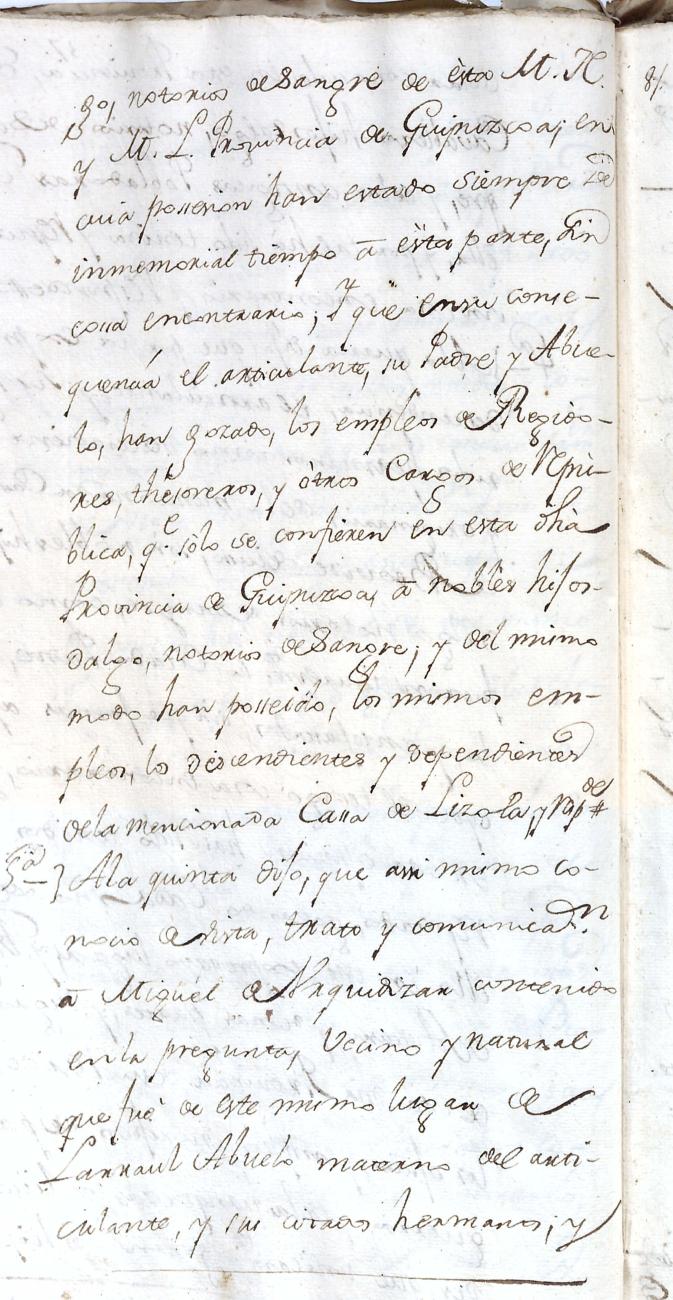 go, notorios de Sangre de èsta M. N.
y M. L. Provincia de Guipuzcoa, en
cuia possesion han estado siempre de
inmemorial tiempo â ésta parte, sin
cossa encontrario; Y que ensu conse-
quencia el articulante, su Padre y Abue-
lo, han gozado, los empleos de Regido-
res, thesoreros, y òtros Cargos de Repu-
blica, qe. sòlo se confieren en esta dha
Provincia de Guipuzcoa, â nobles hijos-
dalgo, notorios de Sangre; y del mismo
modo han posseido, los mismos em-
pleos, los descendientes y dependientes
dela mencionada Cassa de Lizola, y Rapde #
5ª Ala quinta dijo, que assi mismo co-
nocio de vista, trato y comunicaon.
â Miguel de Urquidizar contenido
en la pregunta, Vecino y natural
que fuè de este mismo lugar de
Larraul Abuelo materno del arti-
culante, y sus citados hermanos; y
8ª